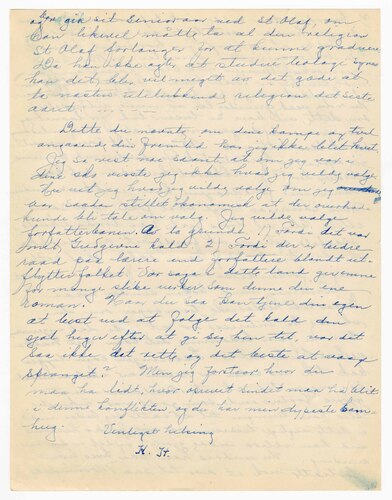 og gik sit Senioraar ved St Olaf, om
han likevel maatte ta al den religion
St Olaf forlanger for at kunne graduere
Da han ikke agter at studere teologi synes
han det blev vel meget av det gode at
ta næsten utelukkende religion det siste
aaret.
Dette du nævnte om dine kampe og tvil
angaaende din fremtid har jeg ikke blit kvit.
Jeg sa vist noe saant at om jeg var i
dine sko visste jeg ikke hvad jeg vilde vælge
Nu vet jeg hvad jeg vilde vælge om jeg
var saada stillet økonomisk at der overhode
kunde bli tale om valg. Jeg vilde vælge
forfatterbanen. Av to grunde. 1) Fordi det var
mit Gudgivne kald. 2) Fordi der er bedre
raad paa lærere end forfattere blandt ut-
flytterfolket. Vor sag i dette land
for mange slike verker som denne din ene
roman. Naar du saa kan tjene din egen
at best ved at følge det kald din
sjæl higer efter at gi sig hen til, var det
saa ikke det rette og det beste at vaage
spranget? Men jeg forstaar hvor du
maa ha lidt, hvor oprevet sindet maa ha blit
i denne konflikten og du har min dypeste Sam-
hug.
Venligst hilsing
K. H.